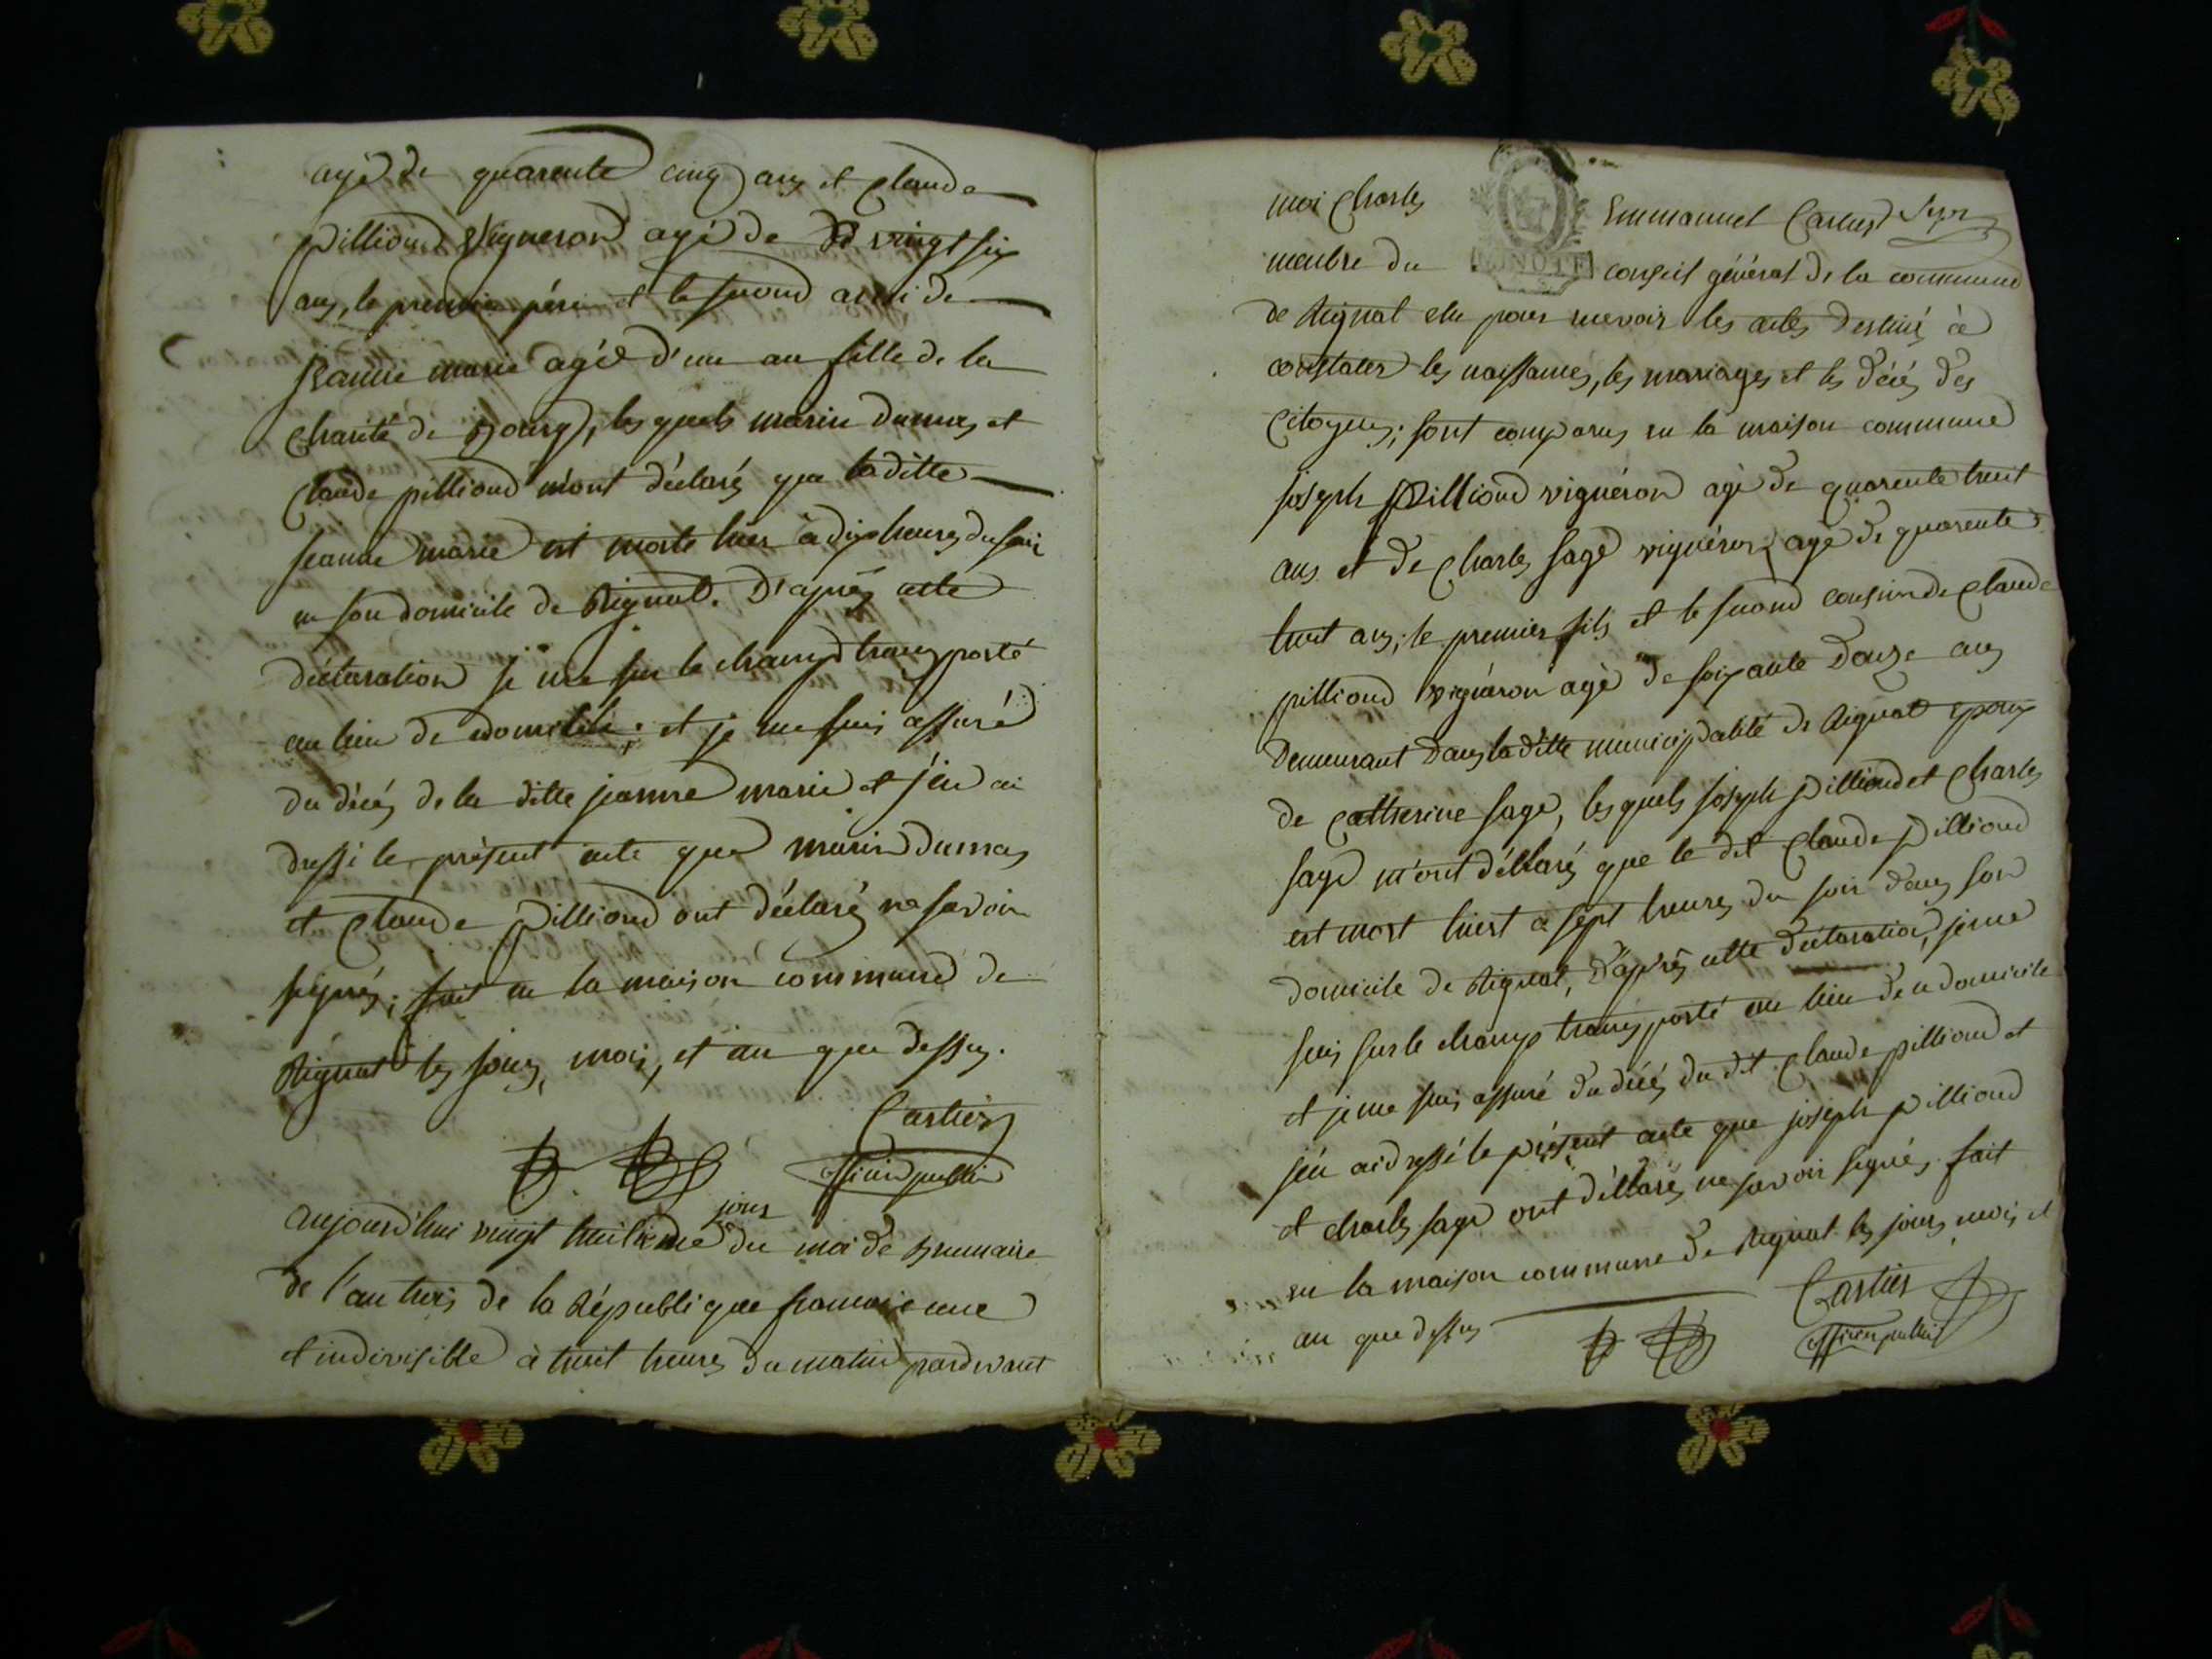 agé de quarente cinq ans et Claude
pilliond vigneron agé de vingt six
ans, le premier pére et le second ami de
jeanne marie agée d'un an fille de la
Charité de Bourg, lesquels marin dumas et
Claude pilliond m'ont déclarés que laditte
jeanne marie est morte hier à dix heures du soir
en son domicile de Rignat. D'après cette
déclaration je me sui le champ transporté
au lieu de domicile; et je me suis assuré
du décés de la ditte jeanne marie et j'en ai
dressé le présent acte que marin dumas
et Claude pilliond ont déclarés ne savoir
signés; fait en la maison commune de
Rignat les jours, mois, et an que dessus.
Cartier
officier public
jour
aujourd'hui vingt huitieme du moi de Brumaire
de l'an trois de la République francoise une
et indivisible à huit heures du matin pardevant
moi Charles Emmanuel Cartier
membre du conseil général de la commune
MINUTE
de Rignat elu pour recevoir les actes destinés à
constater les naissances, les mariages et les décés des
Citoyens; sont comparus en la maison commune
joseph pilliond vignéron agé de quarente huit
ans et de Charles sage vignéron agé de quarente
huit ans; le premier fils et le second cousin de Claude
pilliond vignéron agé de soixante douze ans
demeurant dans la ditte municipalité de Rignat epoux
de Catherine sage, lesquels joseph pilliond et Charles
sage m'ont déclarés que le dit Claude pilliond
est mort hiert a sept heures du soir dans son
domicile de Rignat, D'après cette déclaration, je me
suis sur le champ transporté au lieu de domicile
et je me suis assuré du décés du dit Claude pilliond et
j'en ai dressé le présent acte que joseph pilliond
et charles sage ont déclarés ne savoir signés. fait
en la maison commune de Rignat les jours, mois et
an que dessus
Cartier
officier public